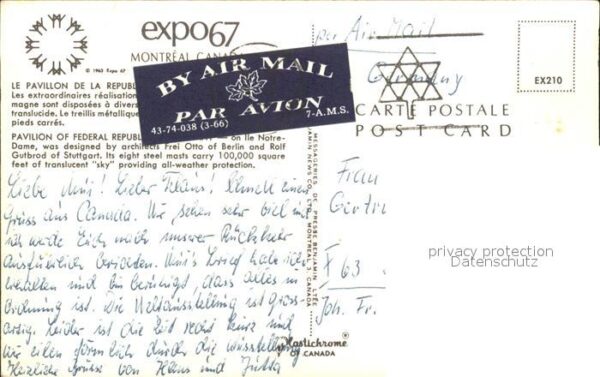 expo67
MONTRÉAL CANADA
© 1963 Expo 67
per Air Mail
Germany
BY AIR MAIL
PAR AVION
43-74-038 (3-66) 7-A.M.S.
EX210
CARTE POSTALE
POST CARD
LE PAVILLON DE LA REPUB
Les extraordinaires réalisation
magne sont disposées à divers
translucide. Le treillis métallique
pieds carrés.
PAVILION OF FEDERAL REPUB on Ile Notre-
Dame, was designed by architects Frei Otto of Berlin and Rolf
Gutbrod of Stuttgart. Its eight steel masts carry 100,000 square
feet of translucent "sky" providing all-weather protection.
Liebe Lieber Klaus! einen
Gruss aus Canada. Wir sehen sehr viel und
ich werde Euch nach unserer Rückkehr
ausführlich berichten. Brief habe ich
erhalten und bin beruhigt, dass alles in
Ordnung ist. Die Weltausstellung ist gross-
artig. Leider ist die Zeit recht kurz und
wir eilen förmlich durch die Ausstellung
Herzliche Grüsse von Hans und Jutta
MESSAGERIE DE PRESSE BENJAMIN LTÉE
BENJAMIN NEWS CO. LTD. MONTREAL 3, CANADA
Plastichrome
OF CANADA
Frau
Gertru
X 63
Joh. Fr.
privacy protection
Datenschutz